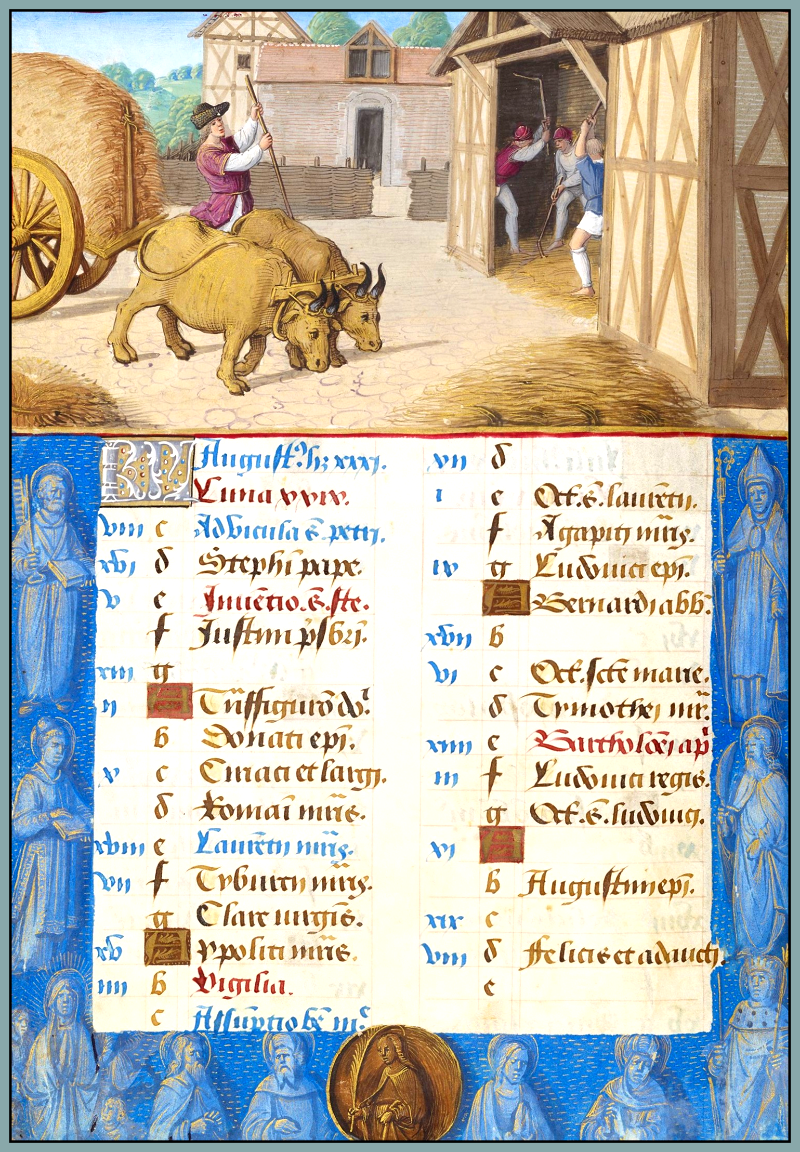 KL August? hz xxxi.
Luna xxix.
viii c Ad vīcula s̄. petri.
xvi d Stephī pape.
v e Inuētio. s̄. ste.
f Iustini p̄sbri.
xiii g
ii A Trāffiguro do.
b Donati epī.
x c Ciriaci et largi.
d Romāi mr̄is.
xviii e Laurētii mr̄is.
vii f Tyburcii mr̄is.
g Clare uirgīs.
xv A Ypoliti mr̄is.
iiii b Vigilia.
c Assūptio bē m.
xii d
i e Oct. s̄. laurētii.
f Agapiti mr̄is.
ix g Ludouici epī.
A Bernardi abb.
xvii b
vi c Oct. scte marie.
d Tymothei mr̄.
xiiii e Bartholoēi ap
iii f Ludouici regis.
g Oct. s̄. ludouici.
xi A
b Augustini epī.
xix c
viii d Felicis et adaucti.
e